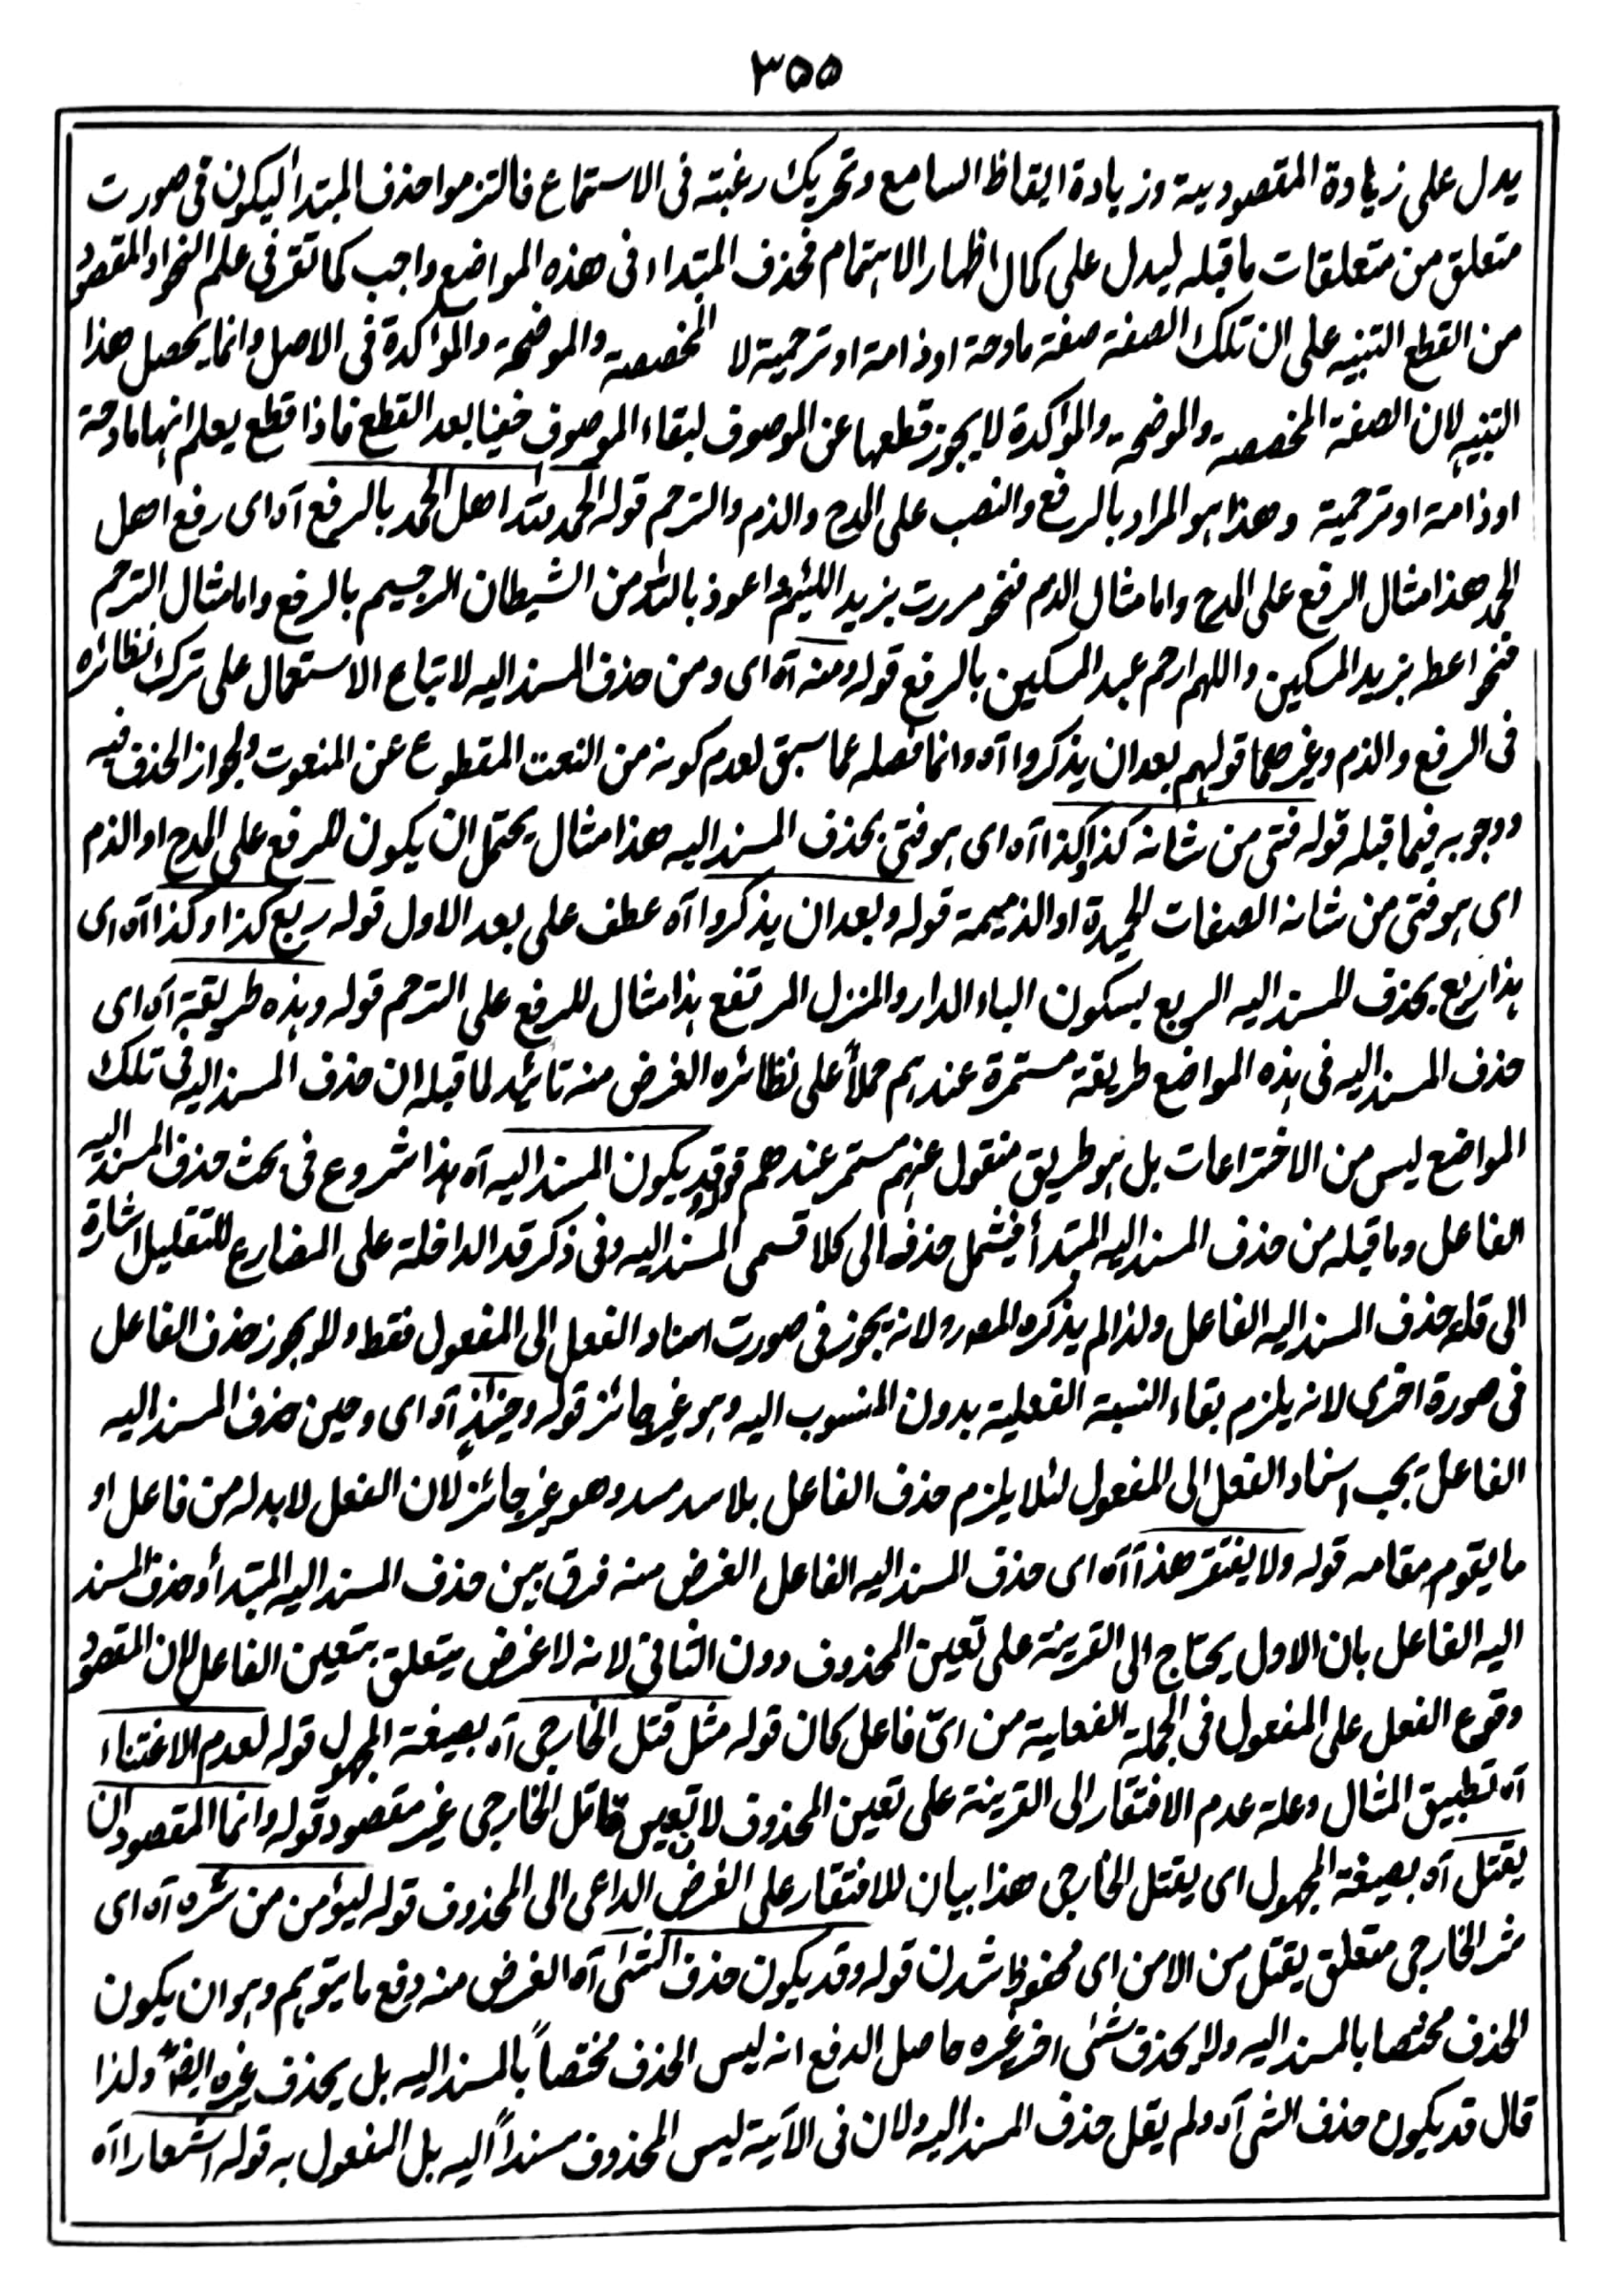 ٣٥٥
يدل على زيادة المقصودية وزيادة ايقاظ السامع وتحريك رغبته فى الاستماع فالتزموا حذف المبتدأ ليكون فى صورت
متعلق من متعلقات ما قبله ليدل على كمال اظهار الاهتمام فحذف المبتداء فى هذه المواضع واجب كما تقرر فى علم النحو او المقصود
من القطع التنبيه على ان تلك الصفة صفة مادحة او ذامة او ترحمية لا المخصصة والموضحة والمؤكدة فى الاصل وانما يحصل هذا
التنبيه لان الصفة المخصصة والموضحة والمؤكدة لا يجوز قطعها عن الموصوف لبقاء الموصوف خفيا بعد القطع فاذا قطع يعلم انها مادحة
او ذامة او ترحمية وهذا هو المراد بالرفع والنصب على المدح والذم والترحم قوله الحمد لله اهل الحمد بالرفع آه اى رفع اهل
الحمد هذا مثال الرفع على المدح واما مثال الذم فنحو مررت بزيد اللئيم واعوذ بالله من الشيطان الرجيم بالرفع واما مثال الترحم
فنحو اعط بزيد المسكين واللهم ارحم عبد المسكين بالرفع قوله ومنه آه اى ومن حذف المسند اليه لاتباع الاستعمال على ترك نظائره
فى الرفع والذم وغيرهما قولهم بعد ان يذكروا آه وانما فصله عما سبق لعدم كونه من النعت المقطوع عن المنعوت ولجواز الحذف فيه
ووجوبه فيما قبله قوله فتى من شانه كذا وكذا آه اى هو فتى بحذف المسند اليه هذا مثال يحتمل ان يكون للرفع على المدح او الذم
اى هو فتى من شانه الصفات الحميدة او الذميمة قوله وبعد ان يذكروا آه عطف على بعد الاول قوله ربع كذا وكذا آه اى
هذا ربع بحذف المسند اليه الربع بسكون الباء الدار والمنزل المرتفع هذا مثال للرفع على الترحم قوله وهذه طريقة آه اى
حذف المسند اليه فى هذه المواضع طريقة مستمرة عندهم حملاً على نظائره الغرض منه تائيد لما قبله ان حذف المسند اليه فى تلك
المواضع ليس من الاختراعات بل هو طريق منقول عنهم مستمر عندهم قوله وقد يكون المسند اليه آه هذا شروع فى بحث حذف المسند اليه
الفاعل وما قبله من حذف المسند اليه المبتدأ فيشمل حذفه الى كلا قسمى المسند اليه وفى ذكر قد الداخلة على المضارع للتقليل اشارة
الى قلة حذف المسند اليه الفاعل ولذا لم يذكره المصر ولانه يجوز فى صورت اسناد الفعل الى المفعول فقط ولا يجوز حذف الفاعل
فى صورة اخرى لانه يلزم بقاء النسبة الفعلية بدون المنسوب اليه وهو غير جائز قوله وحينئذٍ آه اى وحين حذف المسند اليه
الفاعل يجب اسناد الفعل الى المفعول لئلا يلزم حذف الفاعل بلا سد مسد وهو غير جائز لان الفعل لا بد له من فاعل او
ما يقوم مقامه قوله ولا يفتقر هذا آه اى حذف المسند اليه الفاعل الغرض منه فرق بين حذف المسند اليه المبتدأ وحذف المسند
اليه الفاعل بان الاول يحتاج الى القرينة على تعين المحذوف دون الثانى لانه لا غرض يتعلق بتعين الفاعل لان المقصود
وقوع الفعل على المفعول فى الجملة الفعلية من اىّ فاعل كان قوله مثل قتل الخارجى آه بصيغة المجهول قوله لعدم الاعتناء
آه تطبيق المثال وعلة عدم الافتقار الى القرينة على تعين المحذوف لان تعيين قاتل الخارجى غير مقصود قوله وانما المقصود ان
يقتل آه بصيغة المجهول اى يقتل الخارجى هذا بيان للافتقار على الغرض الداعى الى المحذوف قوله ليؤمن من شره آه اى
شر الخارجى متعلق يقتل من الامن اى محفوظ شدن قوله وقد يكون حذف الشئ آه الغرض منه دفع ما يتوهم وهو ان يكون
الحذف مختصا بالمسند اليه ولا يحذف شئ اخر غيره حاصل الدفع انه ليس الحذف مختصاً بالمسند اليه بل يحذف غيره ايضاً ولذا
قال قد يكون حذف الشئ آه ولم يقل حذف المسند اليه ولان فى الآية ليس المحذوف مسنداً اليه بل المفعول به قوله اشعارا آه